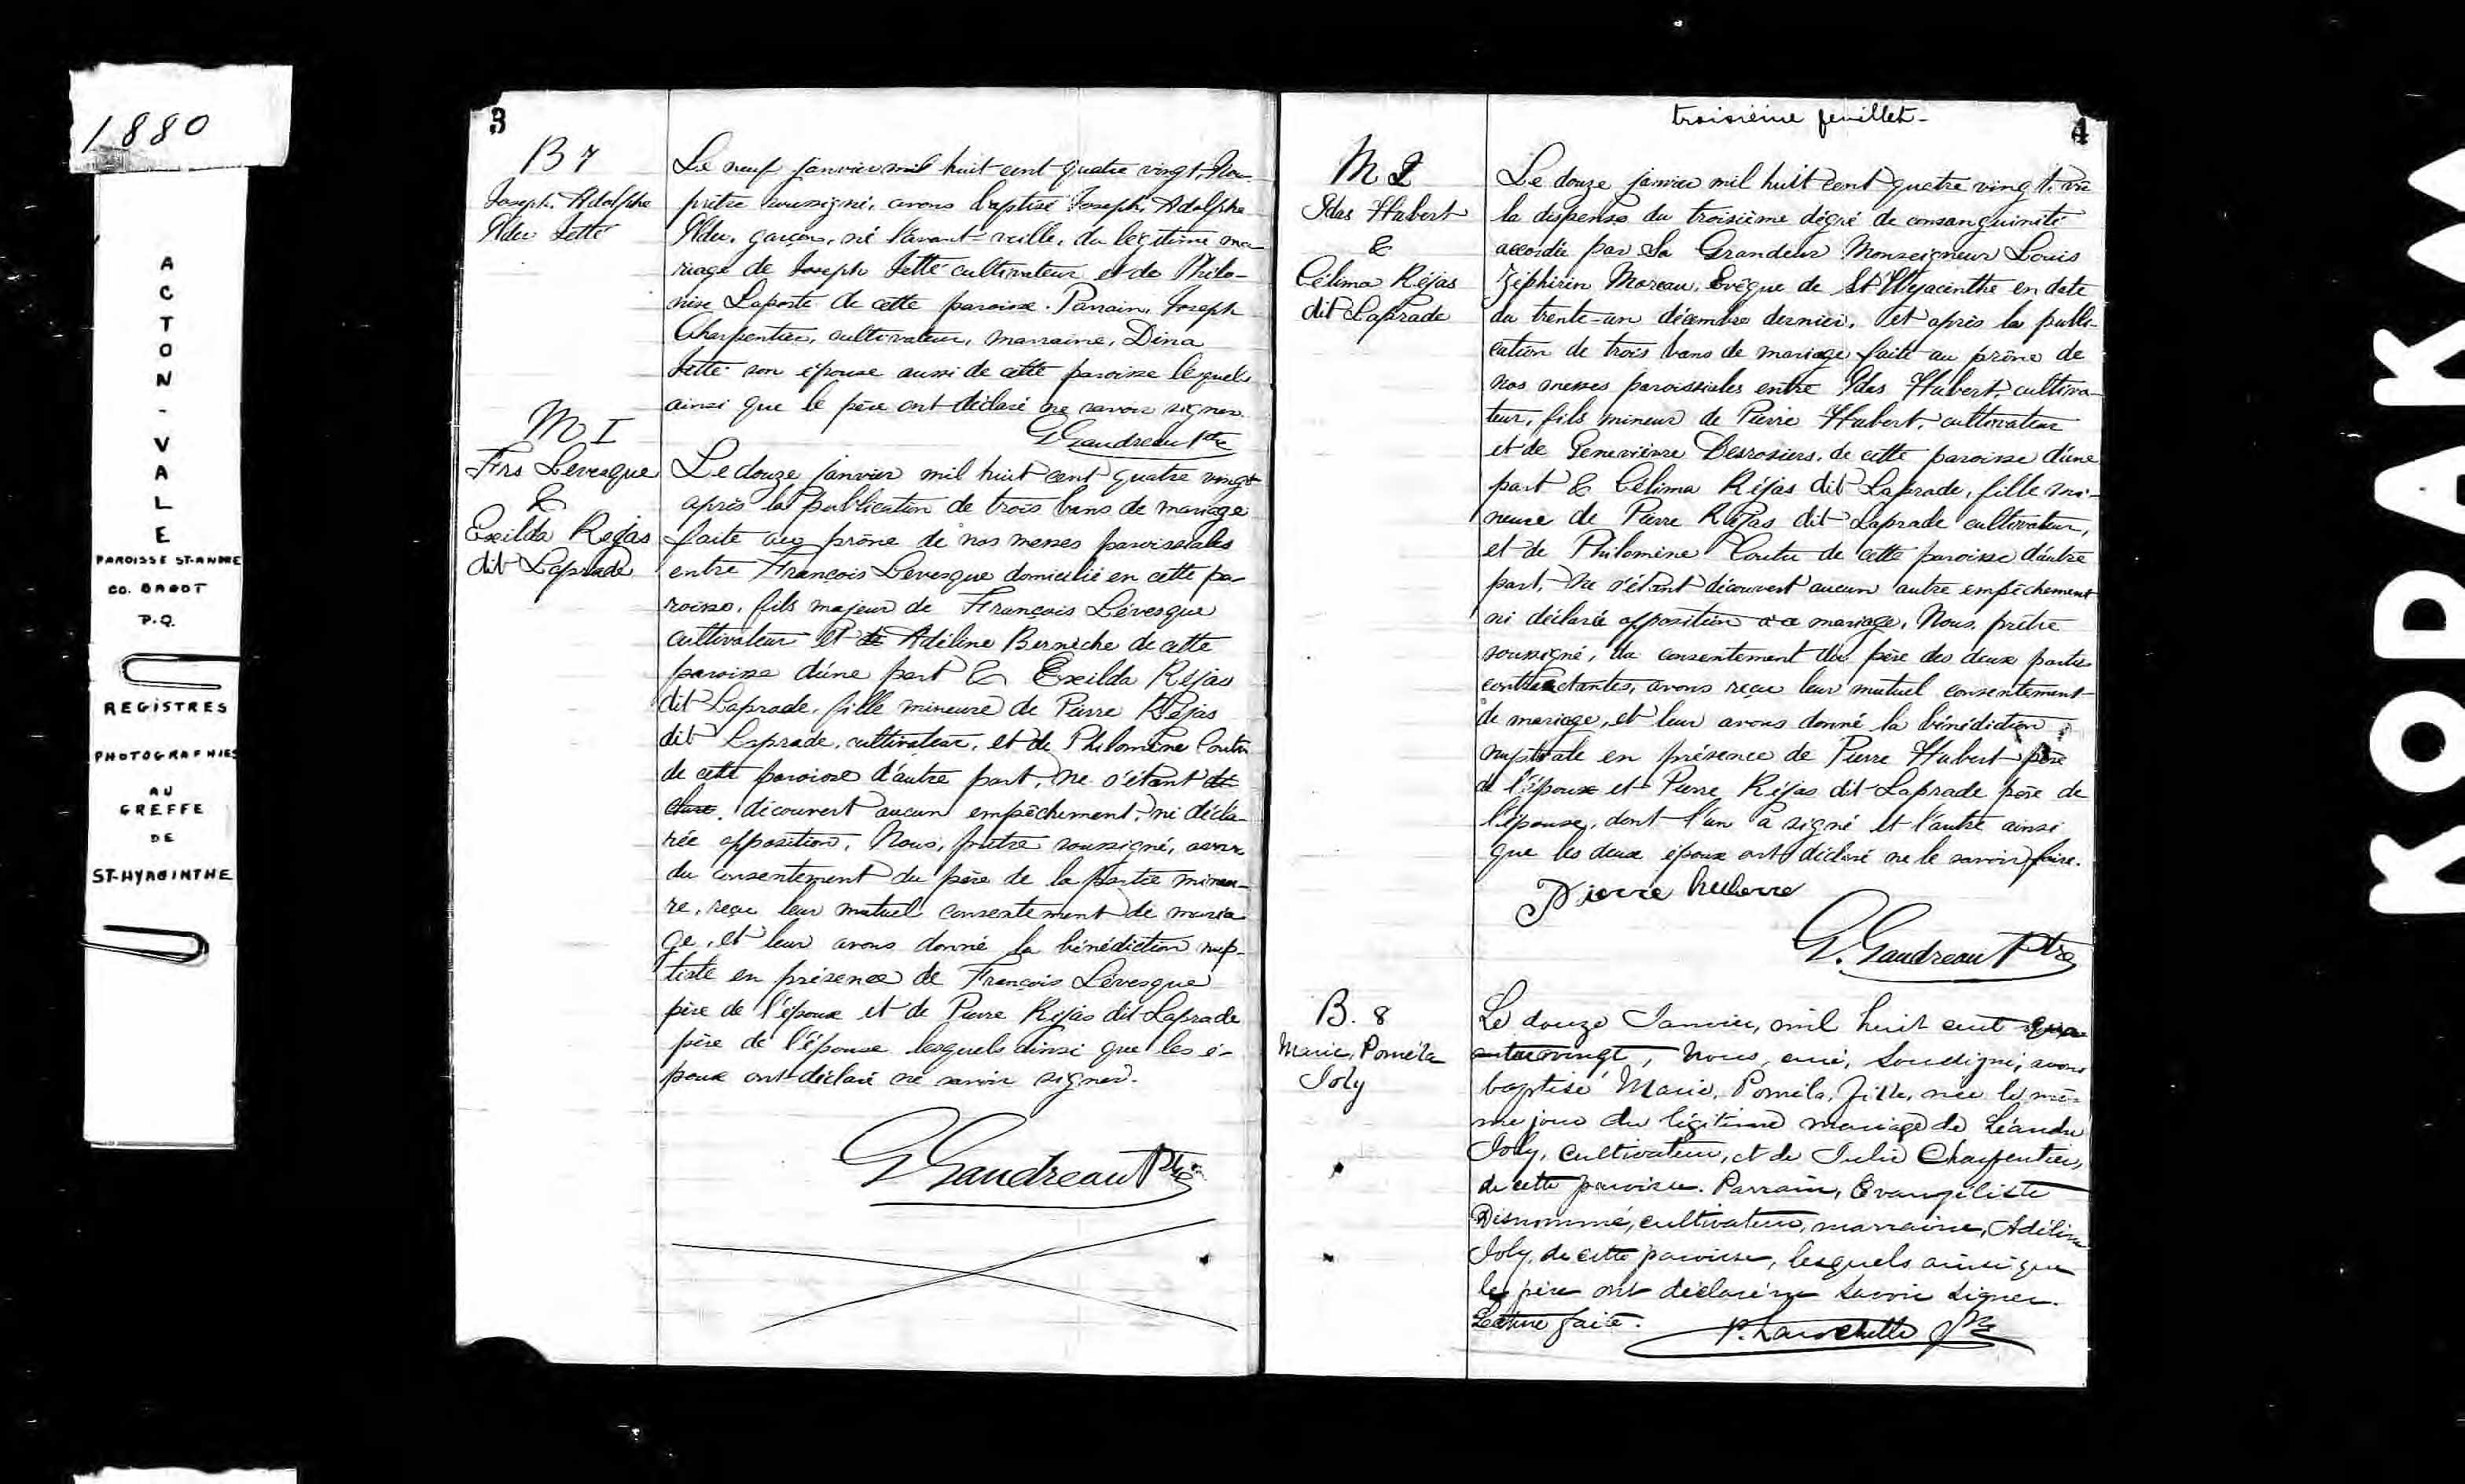 1880
ACTON-VALE
PAROISSE ST-ANDRE
CO. BAGOT
P.Q.
REGISTRES
PHOTOGRAPHIES
AU
GREFFE
DE
ST-HYACINTHE
3
B 7
Joseph, Adolphe
Jetté
Le neuf janvier mil huit cent quatre vingt, Nou
prêtre soussigné, avons baptisé Joseph, Adolphe
garçon, né l'avant-veille, du légitime ma
riage de Joseph Jetté cultivateur et de Philo-
mise Laporte de cette paroisse. Parrain, Joseph
Charpentier, cultivateur, marraine, Dina
Jetté son épouse aussi de cette paroisse lesquels
ainsi que le père ont déclaré ne savoir signer.
G Gaudreau Ptre
M I
Frs Levesque
&
Exilda Rejas
dit Laprade
Le douze janvier mil huit cent quatre vingt
après la publication de trois bans de mariage
faite au prône de nos messes paroissiales
entre François Levesque domicilié en cette pa-
roisse, fils majeur de François Lévesque
cultivateur et de Adéline Bernèche de cette
paroisse d'une part & Exilda Réjas
dit Laprade, fille mineure de Pierre Réjas
dit Laprade, cultivateur, et de Philomène Coutu
de cette paroisse d'autre part, ne s'étant dé
claré, découvert aucun empêchement, ni décla-
rée opposition, Nous, prêtre soussigné, avons
du consentement du père de la partie mineu-
re, reçu leur mutuel consentement de maria
ge, et leur avons donné la bénédiction nup-
tiale en présence de François Lévesque
père de l'époux et de Pierre Rejas dit Laprade
père de l'épouse lesquels ainsi que les é-
poux ont déclaré ne savoir signer.
G Gaudreau Ptre
troisième feuillet-
4
M 2
Idas Hubert
&
Célima Réjas
dit Laprade
Le douze janvier mil huit cent quatre vingt, vu
la dispense du troisième dégré de consanguinité
accordée par Sa Grandeur Monseigneur Louis
Zéphirin Moreau, Evêque de St Hyacinthe en date
du trente-un décembre dernier, et après la publi-
cation de trois bans de mariage faite au prône de
nos messes paroissiales entre Idas Hubert, cultiva-
teur, fils mineur de Pierre Hubert, cultivateur
et de Genevieve Desrosiers, de cette paroisse d'une
part & Célima Réjas dit Laprade, fille mi-
neure de Pierre Réjas dit Laprade cultivateur,
et de Philomène Coutu de cette paroisse d'autre
part, ne s'étant découvert aucun autre empêchement
ni déclaré opposition à ce mariage, Nous, prêtre
soussigné, du consentement du père des deux parties
contractantes, avons reçu leur mutuel consentement
de mariage, et leur avons donné la bénédiction
nuptiale en présence de Pierre Hubert père
de l'époux et Pierre Réjas dit Laprade père de
l'épouse, dont l'un a signé et l'autre ainsi
que les deux époux ont déclaré ne le savoir faire.
Pierre
G. Gaudreau Ptre
B. 8
Marie, Poméla
Joly
Le douze Janvier, mil huit cent qua
trevingt, Nous, curé, soussigné, avons
baptisé Marie, Poméla, fille, née le mê-
me jour du légitime mariage de Léandre
Joly, cultivateur, et de Julie Charpentier,
de cette paroisse. Parrain, Evangéliste
Disnommé, cultivateur, marraine, Adéline
Joly, de cette paroisse, lesquels ainsi que
le père ont déclaré ne savoir signer.
Lecture faite.
P. Larochelle Ptre
KODAK